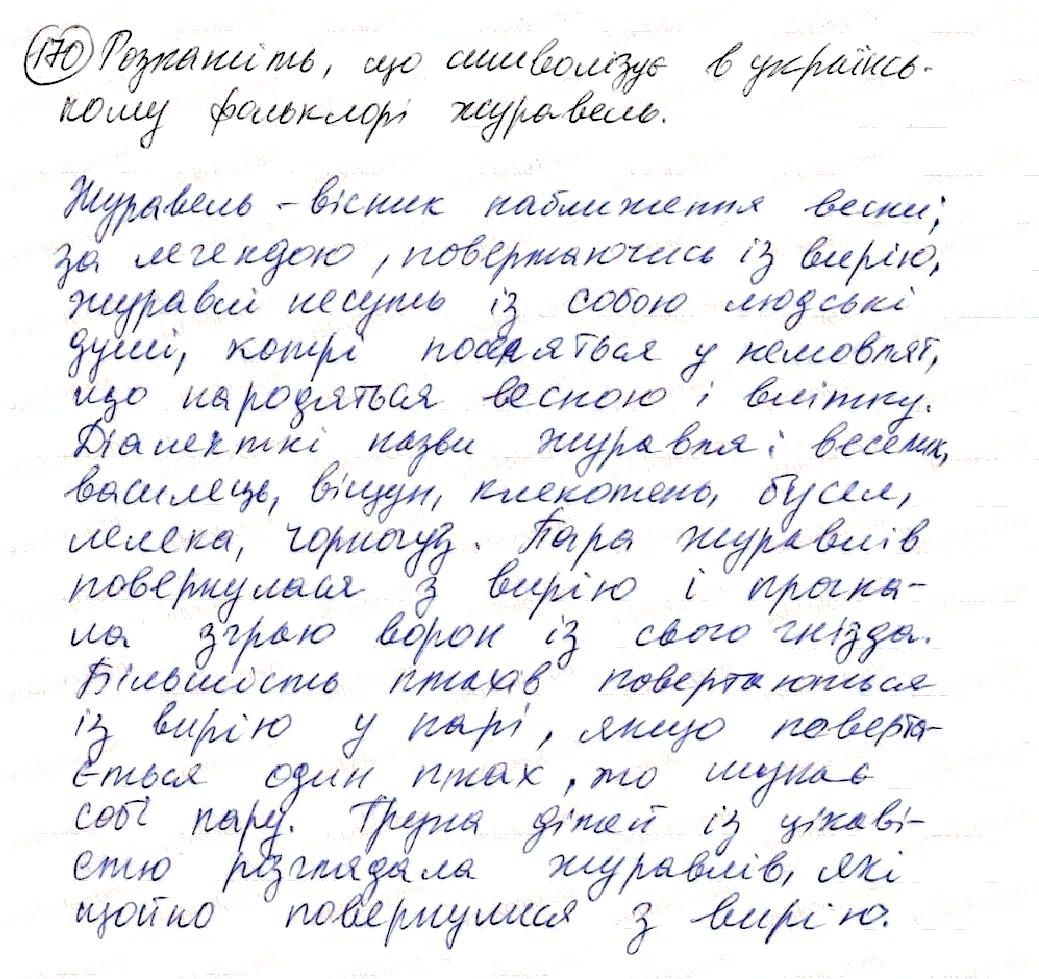 170 Розкажіть, що символізує в українсь-
кому фольклорі журавель.
Журавель - вісник наближення весни;
за легендою, повертаючись із вирію,
журавлі несуть із собою людські
душі, котрі поселяться у немовлят,
що народяться весною і влітку.
Діалектні назви журавля: веселик,
василець, віщун, клекотень, бусел,
лелека, чорногуз. Пара журавлів
повернулася з вирію і прогна-
ла зграю ворон із свого гнізда.
Більшість птахів повертаються
із вирію у парі, якщо поверта-
ється один птах, то шукає
собі пару. Група дітей із цікаві-
стю розглядала журавлів, які
щойно повернулися з вирію.